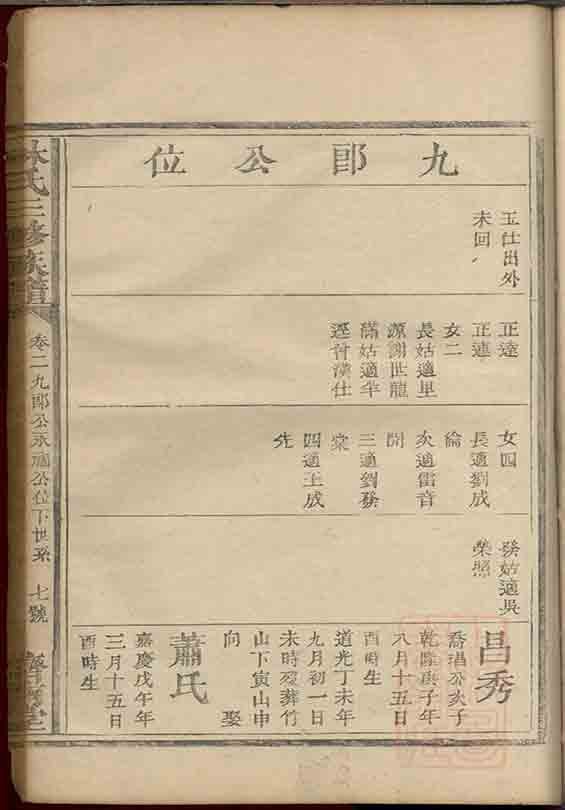 九郎公位
玉仕出外
未回
正達
正連
女二
長姑適里
源謝世龍
滿姑適羊
逕曾漢仕
女四
長適劉成
倫
次適雷音
開
三適劉發
棠
四適王成
先
發姑適吳
榮照
昌秀
喬瑁公次子
乾隆庚子年
八月十五日
酉時生
道光丁未年
九月初一日
未時歿葬竹
山下寅山申
向 娶
蕭氏
嘉慶戊午年
三月十五日
酉時生
林氏三修族譜
卷二九郎公永適公位下世系 七號
堂